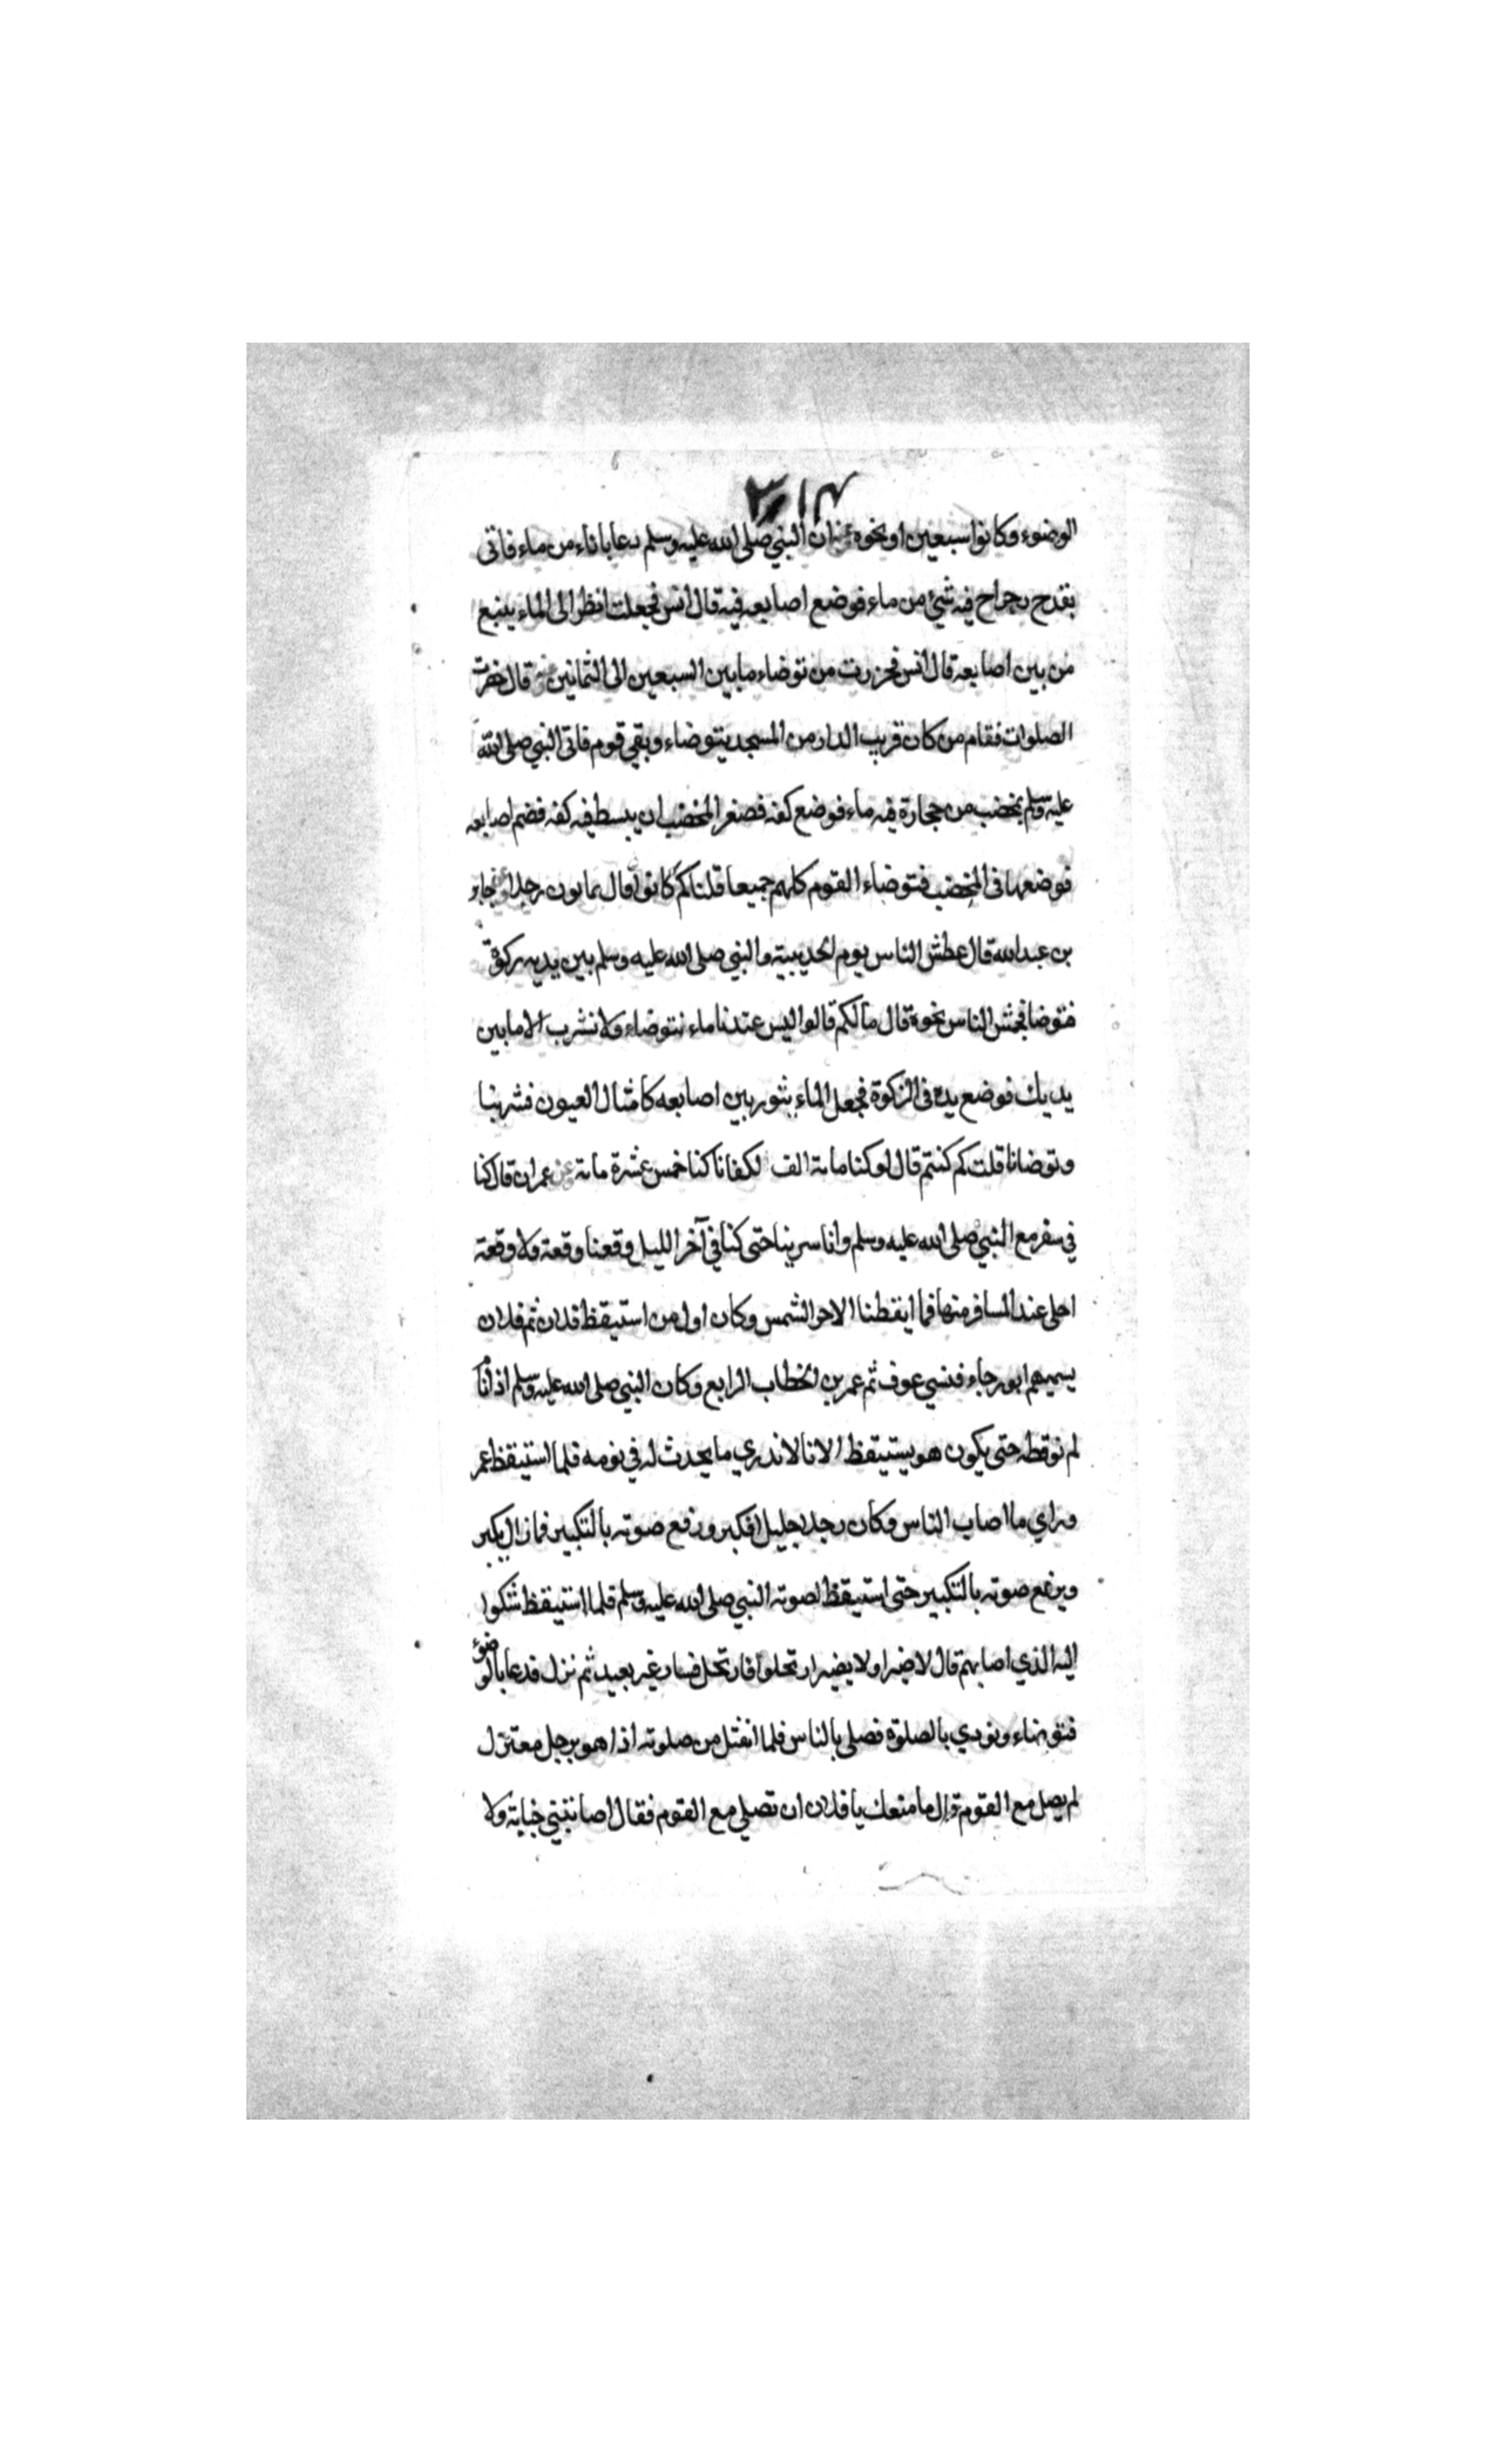 الوضوء وكانوا سبعين او نحوه ان النبي صلى الله عليه وسلم دعا باناء من ماء فاتى
بقدح رحراح فيه شئ من ماء فوضع اصابعه فيه قال انس فجعلت انظر الى الماء ينبع
من بين اصابعه قال انس فحزرت من توضاء ما بين السبعين الى الثمانين قال حضرت
الصلوات فقام من كان قريب الدار من المسجد يتوضاء وبقي قوم فاتى النبي صلى الله
عليه وسلم بمخضب من حجارة فيه ماء فوضع كفه فصغر المخضب ان يبسط فيه كفه فضم اصابعه
فوضعها في المخضب فتوضاء القوم كلهم جميعا قلنا كم كانوا قال ثمانون رجلا جابر
بن عبد الله قال عطش الناس يوم الحديبية والنبي صلى الله عليه وسلم بين يديه ركوة
فتوضا فجهش الناس نحوه قال ما لكم قالوا ليس عندنا ماء نتوضاء ولا نشرب الا ما بين
يديك فوضع يده في الركوة فجعل الماء يثور بين اصابعه كامثال العيون فشربنا
وتوضانا قلت كم كنتم قال لو كنا ماىة الف لكفانا كنا خمس عشرة ماىة عن عمران قال كنا
في سفر مع النبي صلى الله عليه وسلم وانا سرينا حتى كنا في آخر الليل وقعنا وقعة ولا وقعة
احلى عند المسافر منها فما ايقظنا الا حر الشمس وكان اول من استيقظ فلان ثم فلان
يسميهم ابو رجاء فنسي عوف ثم عمر بن الخطاب الرابع وكان النبي صلى الله عليه وسلم اذا نام
لم نوقظه حتى يكون هو يستيقظ الانا لا ندري ما يحدث له في نومه فلما استيقظ عمر
وراي ما اصاب الناس وكان رجلا جليلا فكبر ورفع صوته بالتكبير فما زال يكبر
ويرفع صوته بالتكبير حتى استيقظ لصوته النبي صلى الله عليه وسلم فلما استيقظ شكوا
اليه الذي اصابهم قال لا ضير او لا يضير ارتحلوا فارتحل فسار غير بعيد ثم نزل فدعا بالوضوء
فتوضاء ونودي بالصلوة فصلى بالناس فلما انفتل من صلوته اذا هو برجل معتزل
لم يصل مع القوم قال ما منعك يا فلان ان تصلي مع القوم فقال اصابتني جنابة ولا